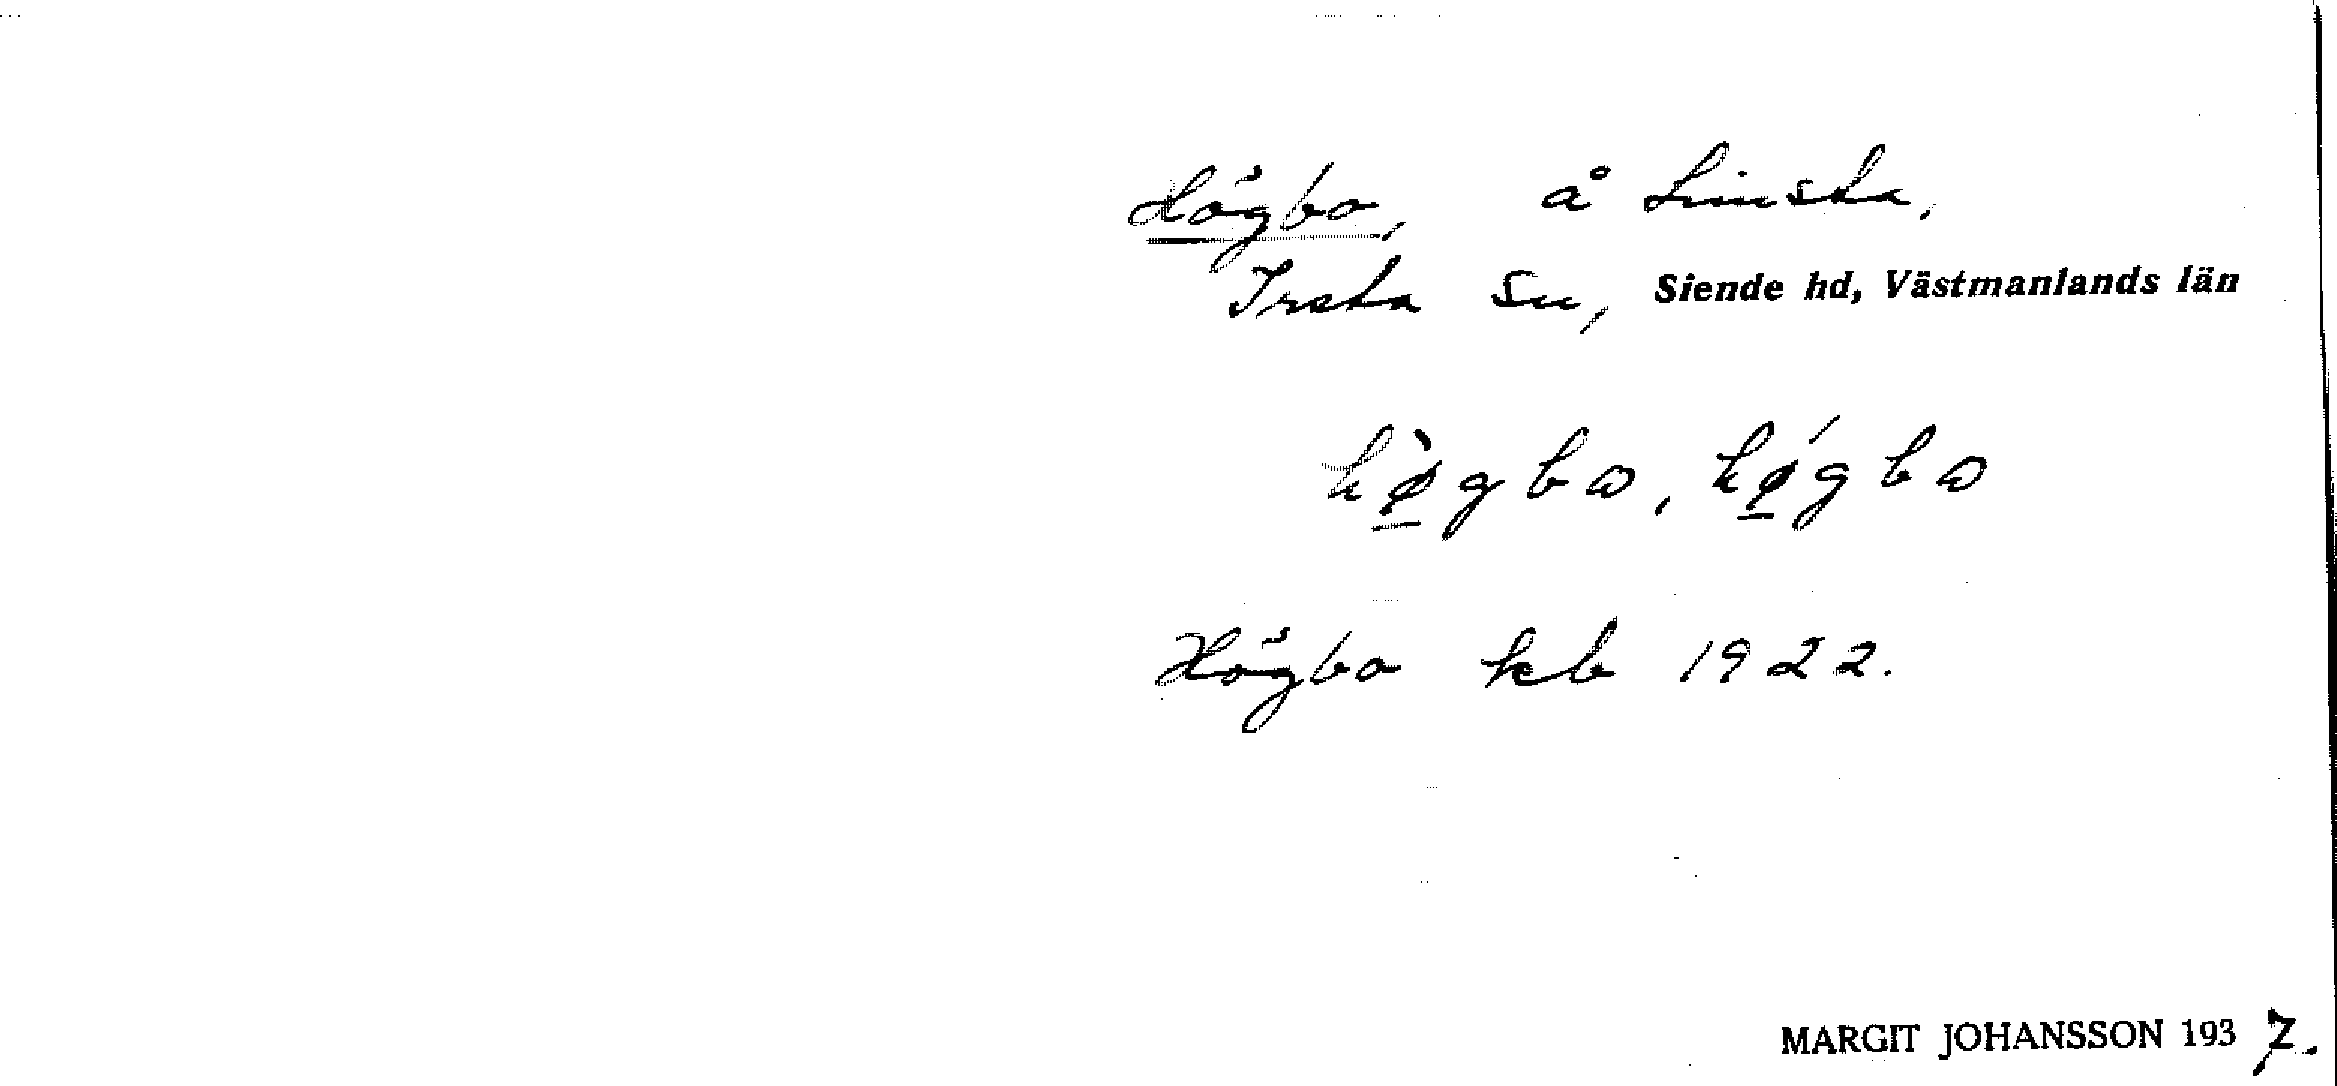 Högbo, å Limsta,
Irsta sn, Siende hd, Västmanlands län
hø̱̀gbω, hǿ̱gbω
Högbo kb 1922.
MARGIT JOHANSSON 1937.